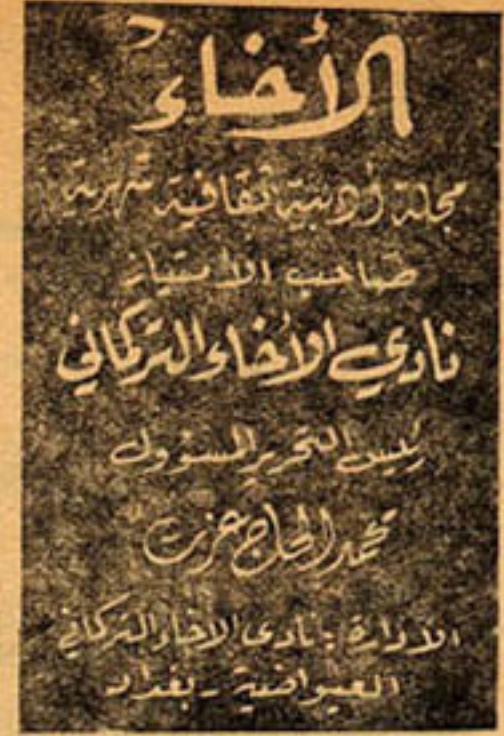 الأخاء
مجلة أدبية ثقافية شهرية
صاحب الأمتياز
نادي الأخاء التركماني
رئيس التحرير المسؤول
محمد الحاج عزت
الادارة : نادى الاخاء التركماني
العيواضية - بغداد